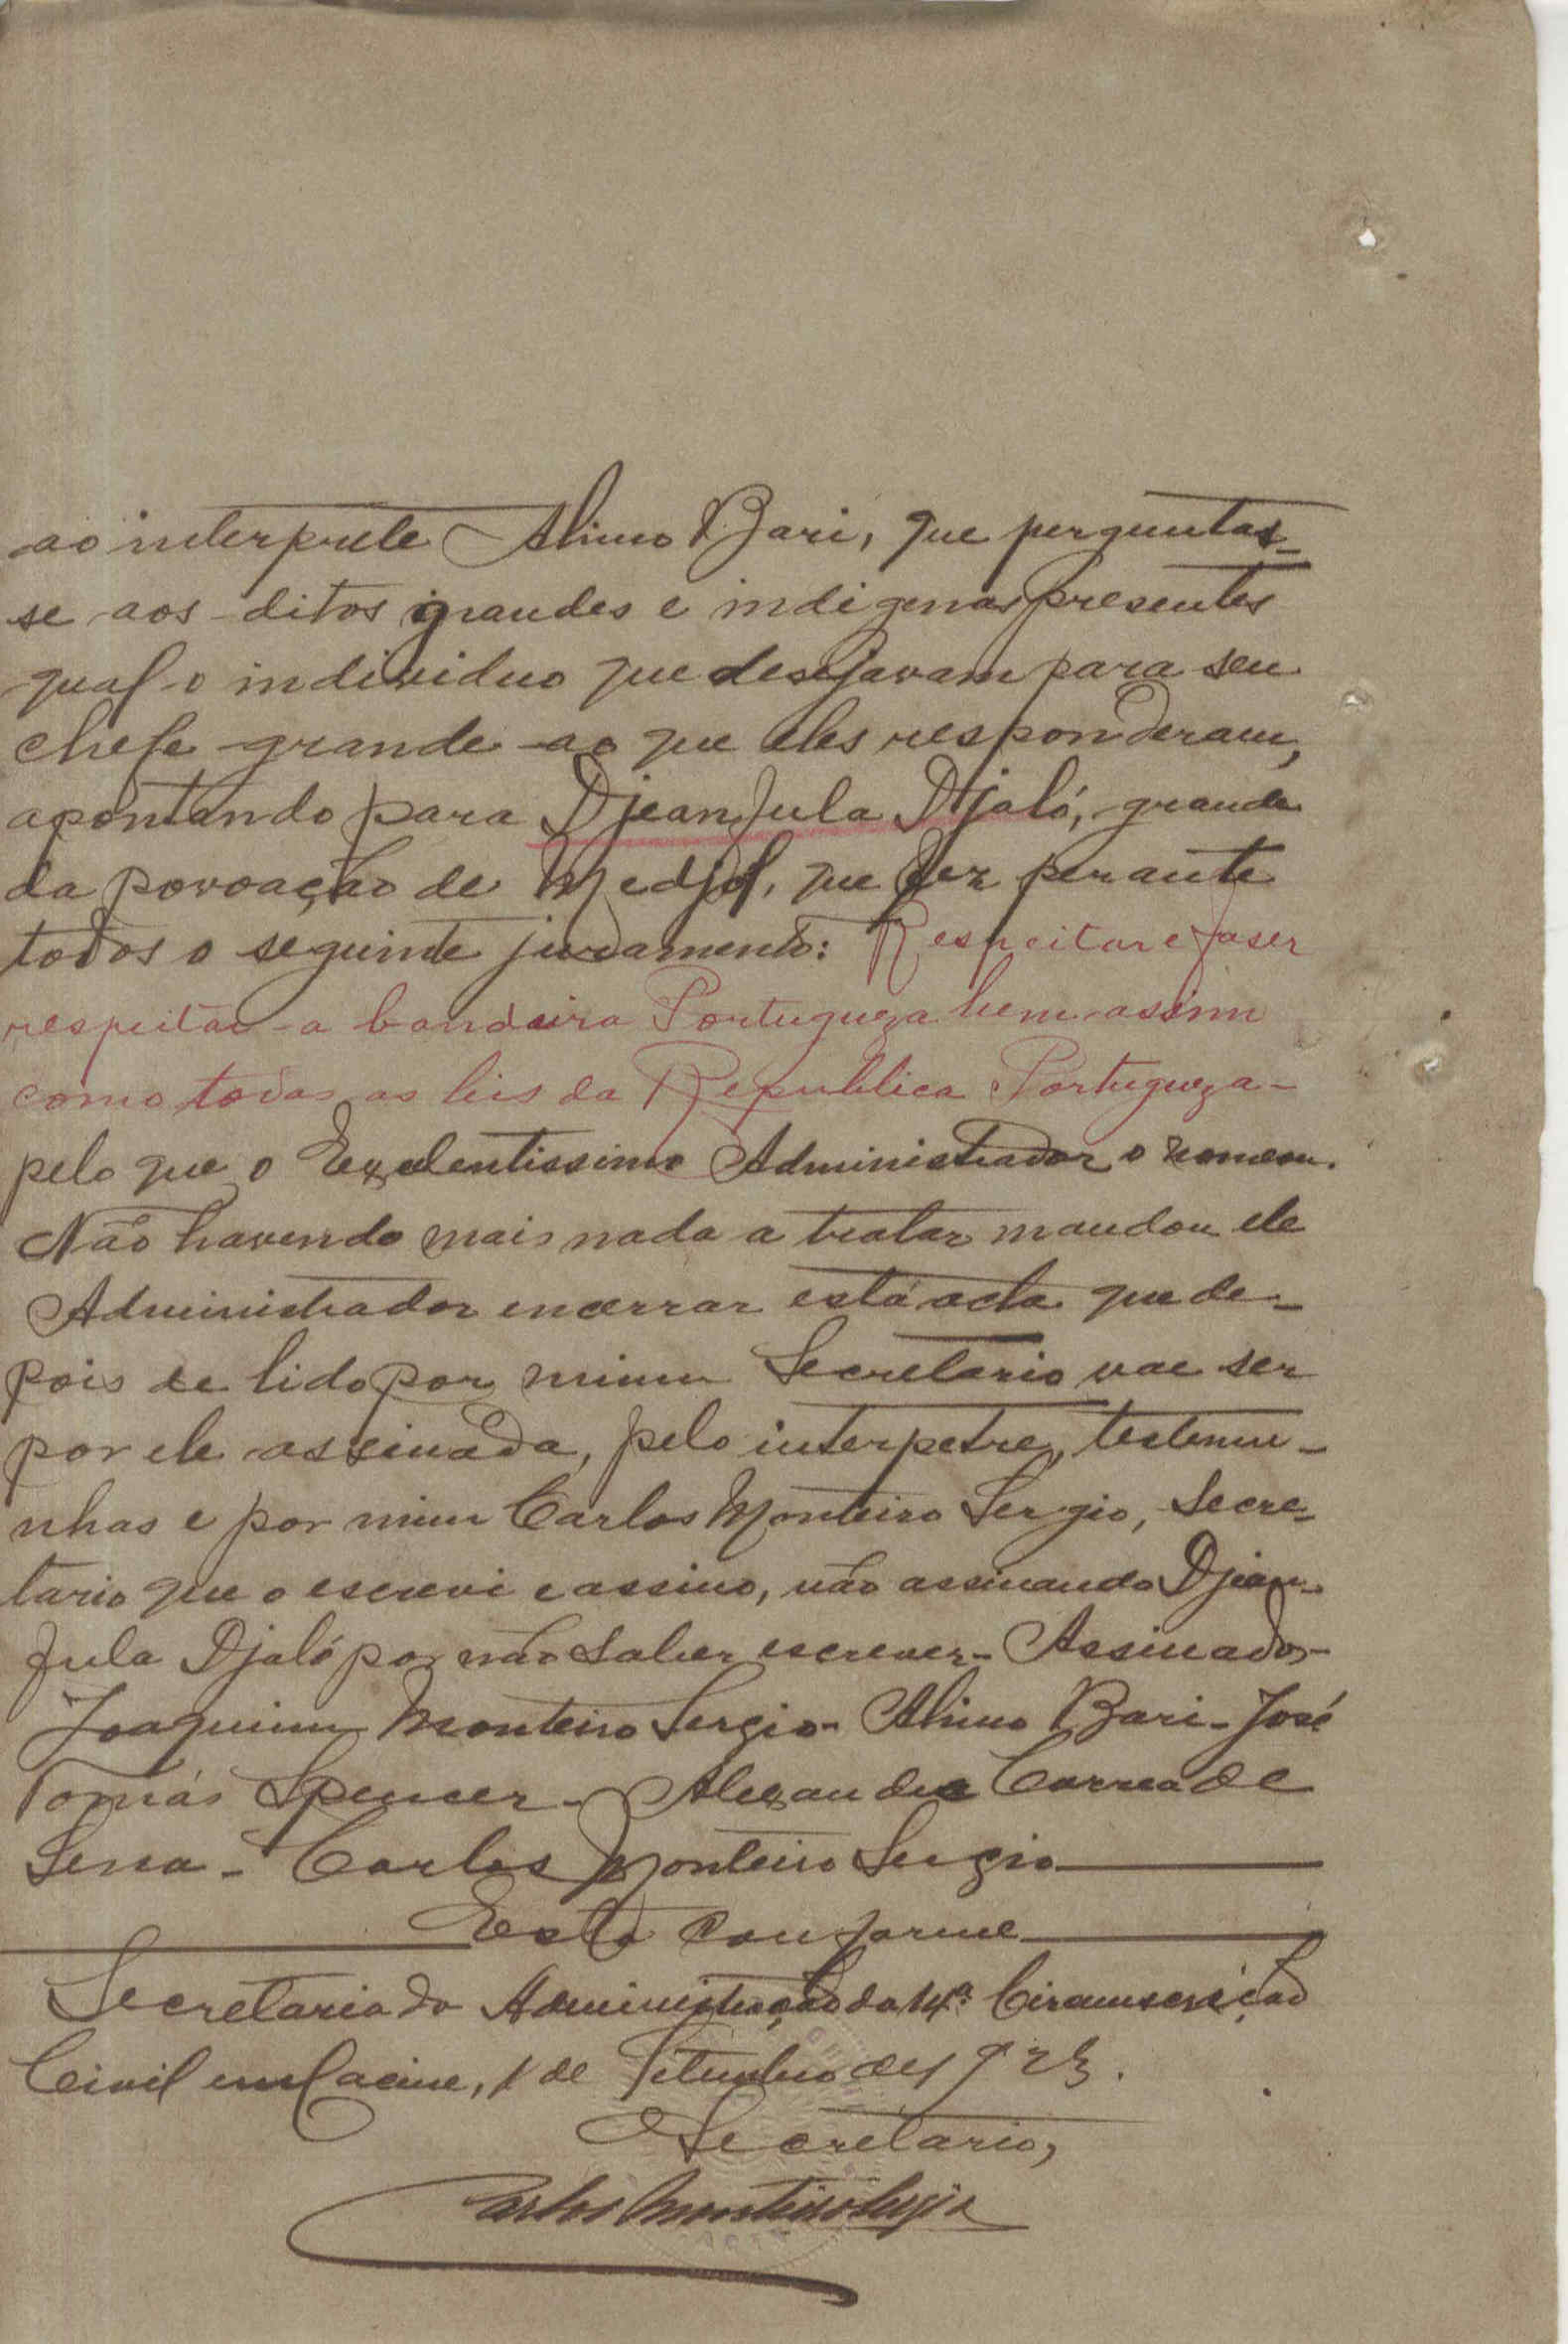 ao interprete Alimo Bari, que perguntas-
se aos ditos grandes e indigenas presentes
qual o individuo que desejavam para seu
chefe grande ao que eles responderam,
apontando para Djeanfula Djaló, grande
da povoação de Medjo, que fez perante
todos o seguinte juramento: Respeitar e faser
respeitar a bandeira Portugueza bem assim
como todas as leis da Republica Portugueza-
pelo que o Exelentissimo Administrador o nomeou.
Não havendo mais nada a tratar mandou ele
Administrador encerrar está acta que de-
pois de lido por mim Secretario vae ser
por ele assinada, pelo interpetre, testemu-
nhas e por mim Carlos Monteiro Sergio, Secre-
tario que o escrevi e assino, não assinando Djean-
fula Djaló por não saber escrever- Assinados-
Joaquim Monteiro Sergio- Alimo Bari- José
Tomás Spencer- Alexandre Correa de
Sena- Carlos Monteiro Sergio
Está conforme
Secretaria da Administração da 14ª. Circumscrição
Civil em Cacine, 1 de Setembro de 1923.
O Secretario,
Carlos Monteiro Sergio